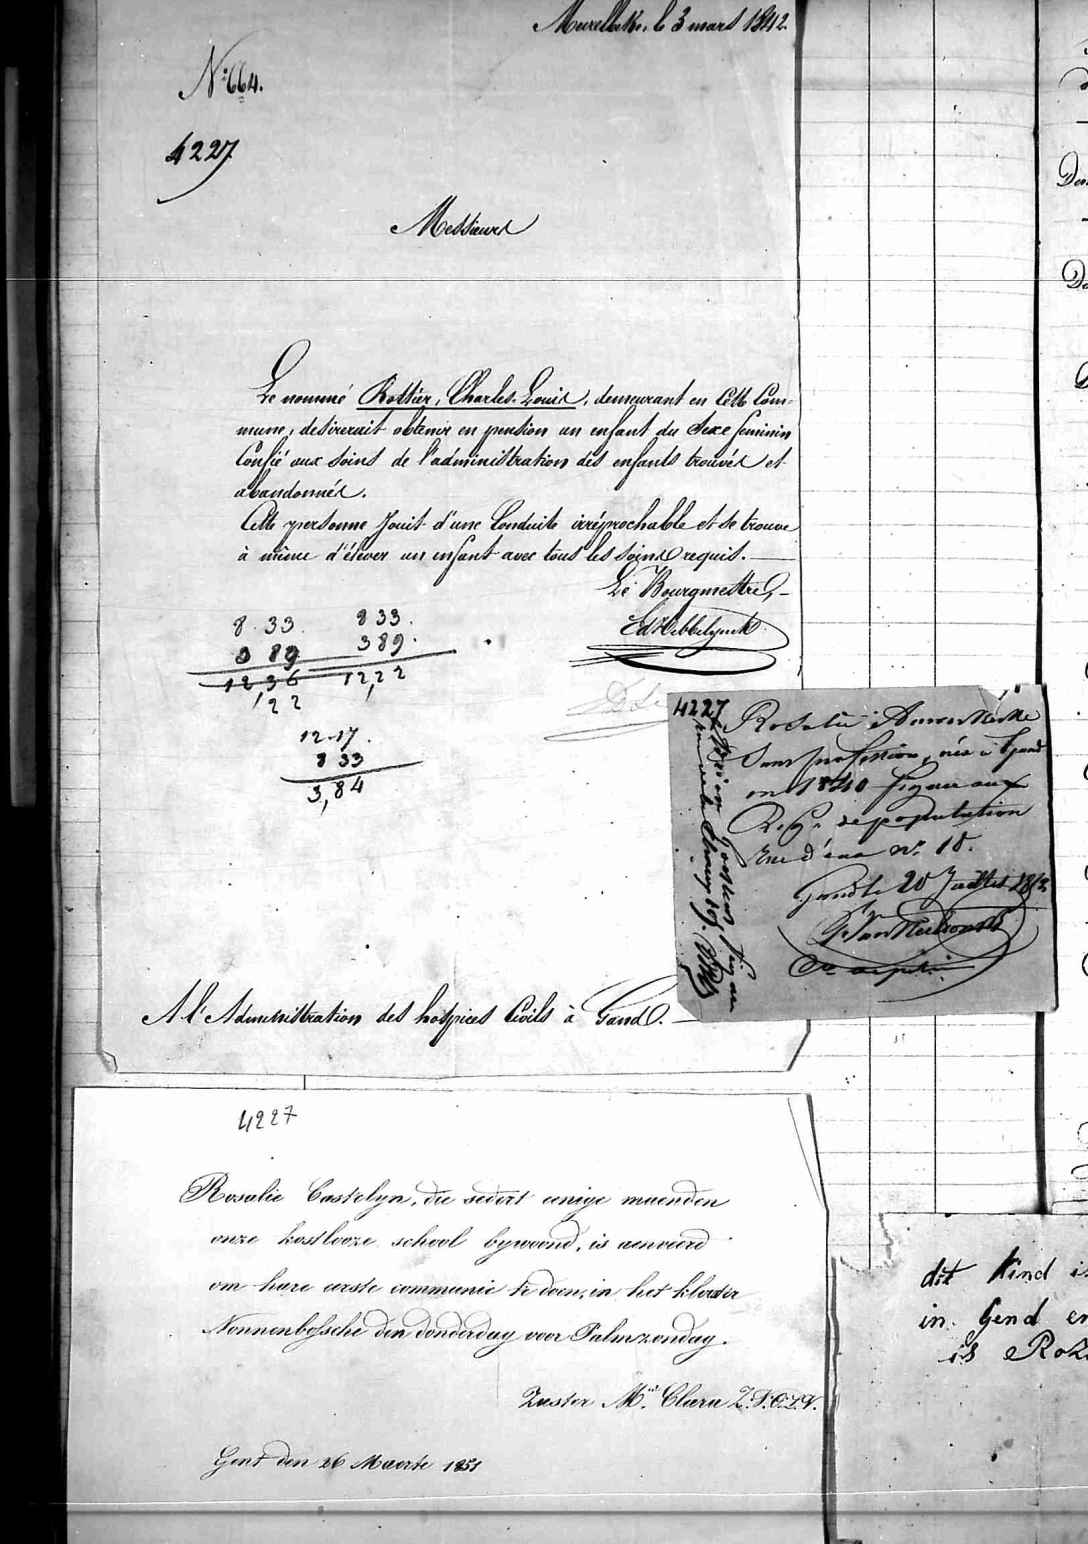 Meirelbeke, le 3 mars 1842.
N° 664.
4227
Messieurs
Le nommé Rottier, Charles-Louis, demeurant en cette Com-
mune, desirerait obtenir en pension un enfant du Sexe feminin
Confié aux soins de l'administration des enfants trouvés et
abandonnés.
Cette personne Jouit d'une Conduite irréprochable et se trouve
à même d'élever un enfant avec tous les soins requis.
Le Bourgmestre,
8.33. 833.
3 89 389.
1236 12,22
,22
12.17.
833
3,84
4227
Rosalie
Sans profession, née à Gand
en 1840 figure aux
Reg. de population
Rue d' n° 18.
Gand le 20 Juillet
A l'Administration des hospices Civils à Gand.
4227
Rosalie Castelyn, die sedert eenige maenden
onze kostlooze school bywoond, is aenveerd
om hare eerste communie te doen, in het klooster
Nonnenbossche den donderdag voor Palmzondag.
Zuster M. Clara
Gent den 26 Maerte 1851
dit Kind
in Gend
is